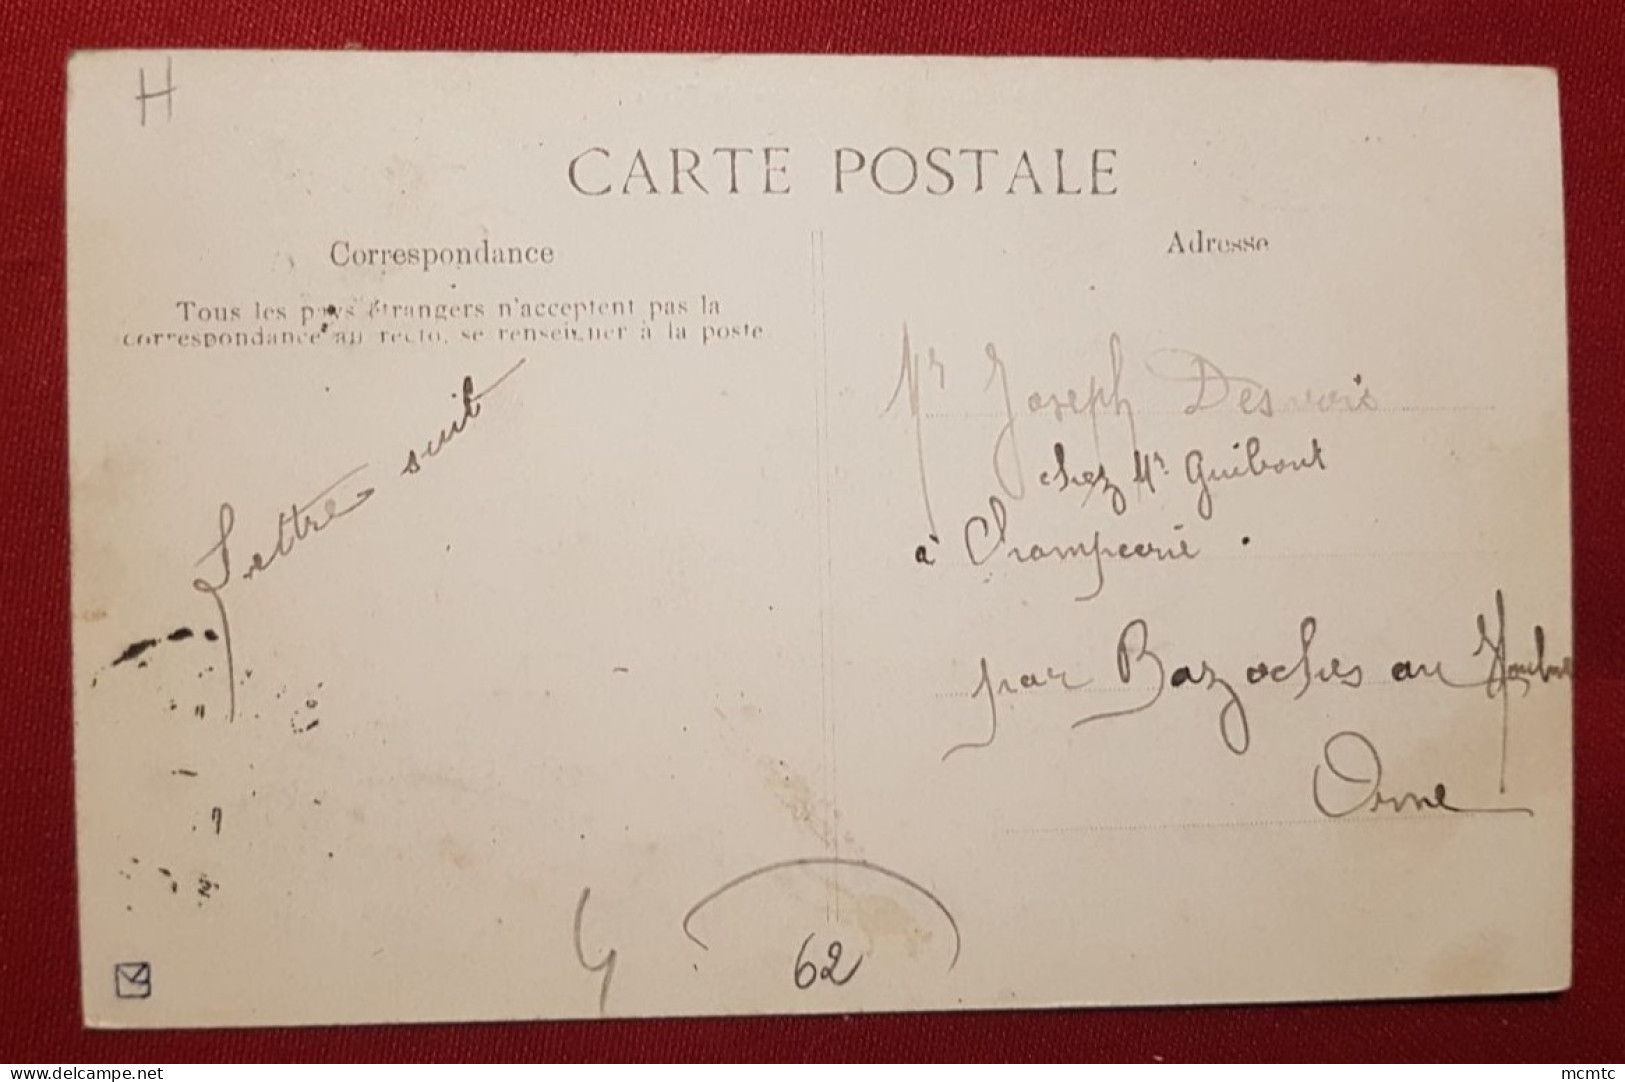 H
CARTE POSTALE
Correspondance
Tous les pays étrangers n'acceptent pas la
correspondance au recto, se renseigner à la poste
Lettre suit
Adresse
Mr Joseph Desvois
chez Mr Guibout
à
par Bazoches au Houlme
Orne
62
website: delcampe.net
mcmtc